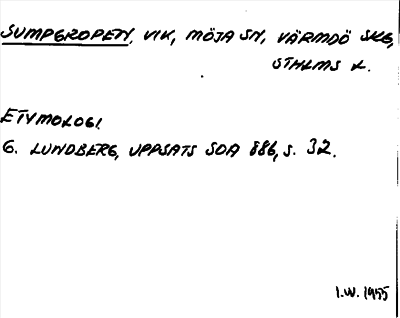 SUMPGROPEN, VIK, MÖJA SN, VÄRMDÖ SKG,
STHLMS L.
ETYMOLOGI.
G. LUNDBERG, UPPSATS SOA 886, S. 32.
I.W. 1955